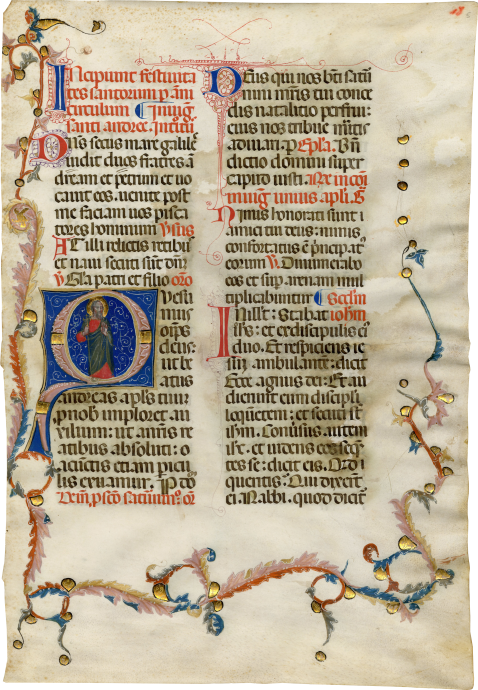 INcipiunt festiuita
tes santorum p anni
circulum ¶ In uig
santi andree. Introitus
Dns secus mare galile
uidit duos fratres an
dream et petrum et uo
cauit eos. uenite post
me faciam uos pisca
tores hominum
At illi relictis retibus
et naui secuti sunt dnm
Gla patri et filio oro
Quesu
mus
omps
deus:
ut be
atus
andreas apls tuus
p nob imploret au
xilium: ut a nris re
atibus absoluti: a
cunctis etiam picu
lis eruamur. P do
Deus qui nos bti
nimi nris tui conce
dis natalitio perfrui:
eius nos tribue mitis
adiuuari. p Epla. Bn
dictio domini super
caput iusti. Rx in com
muni unius apli. G
Nimis honorati sunt
amici tui deus: nimis
confortatus e principat
eorum V. Dinumerabo
eos et sup arenam mul
tiplicabuntur ¶ Secdm
In illo t: Stabat iohem
iohs: et ex discipulis ei
duo. Et respiciens ie
sum ambulante: dicit
Ecce agnus dei: Et au
dierunt eum discipli
loquetem: et secuti st
ihm. Conuersus autem
ihc. et uidens eos seq
tes se: dicit eis. Quid
queritis: Qui dixerut
ei Rabbi. quod dicit